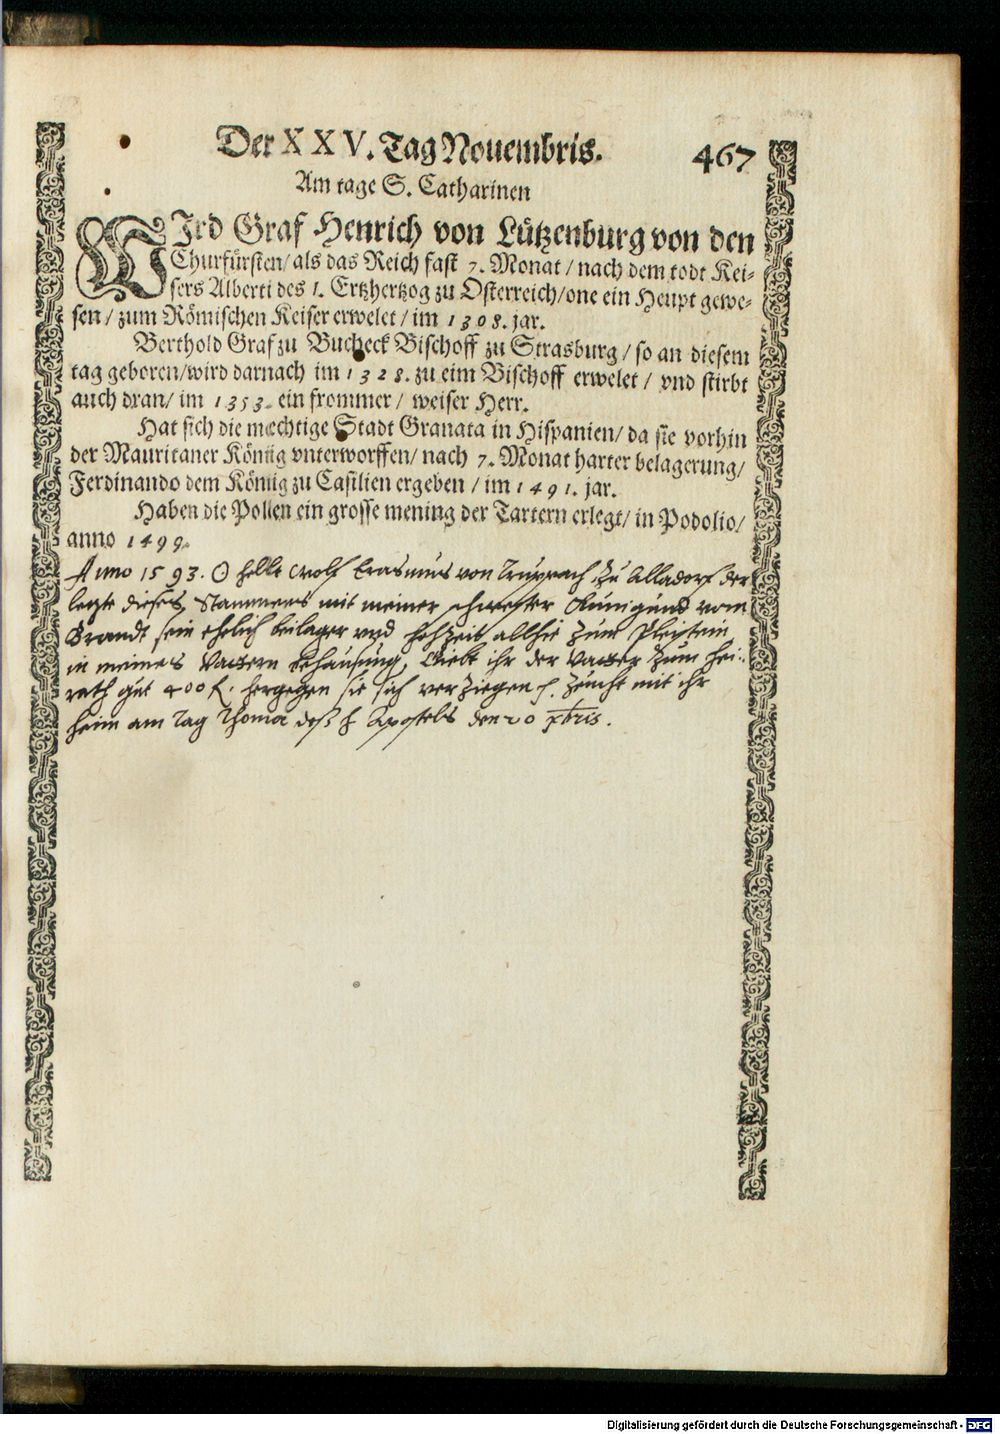 Der XXV. Tag Nouembris. 467
Am tage S. Catharinen
WIrd Graf Henrich von Lützenburg von den
Churfürsten / als das Reich fast 7. Monat / nach dem todt Kei-
sers Alberti des 1. Ertzhertzog zu Osterreich / one ein Heupt gewe-
sen / zum Römischen Keiser erwelet / im 1308. jar.
Berthold Graf zu Bucheck Bischoff zu Strasburg / so an diesem
tag geboren / wird darnach im 1328. zu eim Bischoff erwelet / vnd stirbt
auch dran / im 1353. ein frommer / weiser Herr.
Hat sich die mechtige Stadt Granata in Hispanien / da sie vorhin
der Mauritaner König vnterworffen / nach 7. Monat harter belagerung /
Ferdinando dem König zu Castilien ergeben / im 1491. jar.
Haben die Pollen ein grosse mening der Tartern erlegt / in Podolio /
anno 1499.
Anno 1593. ☉ hellt Wolf Erasmus von Truprach zu Alladorf der
letzte dieses Stammens mit meiner schwester Kunigund vom
Brandt sein ehelich beilager vnd hochzeit allhie zum Pleistein
in meines Vattern behausung, Giebt ihr der Vatter zum hei-
rath gut 400 f. hergegen sie sich verziegen. Zeucht mit ihr
heim am Tag Thomæ deß h Apostels den 20 xbris.
Digitalisierung gefördert durch die Deutsche Forschungsgemeinschaft - DFG